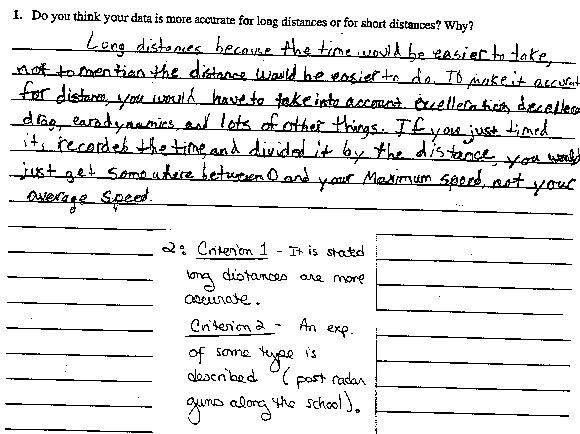 1. Do you think your data is more accurate for long distances or for short distances? Why?
Long distances because the time would be easier to take,
not to mention the distance would be easier to do. To make it accurat
for distans, you would have to take into account
drag, earodynamics, and lots of other things. If you just timed
it, recorded the time, and divided it by the distance, you would
just get somewhere between 0 and your Maximum speed, not your
average speed.
2: Criterion 1 - It is stated
long distances are more
accurate.
Criterion 2 - An exp.
of some type is
described (post radar
guns along the school).